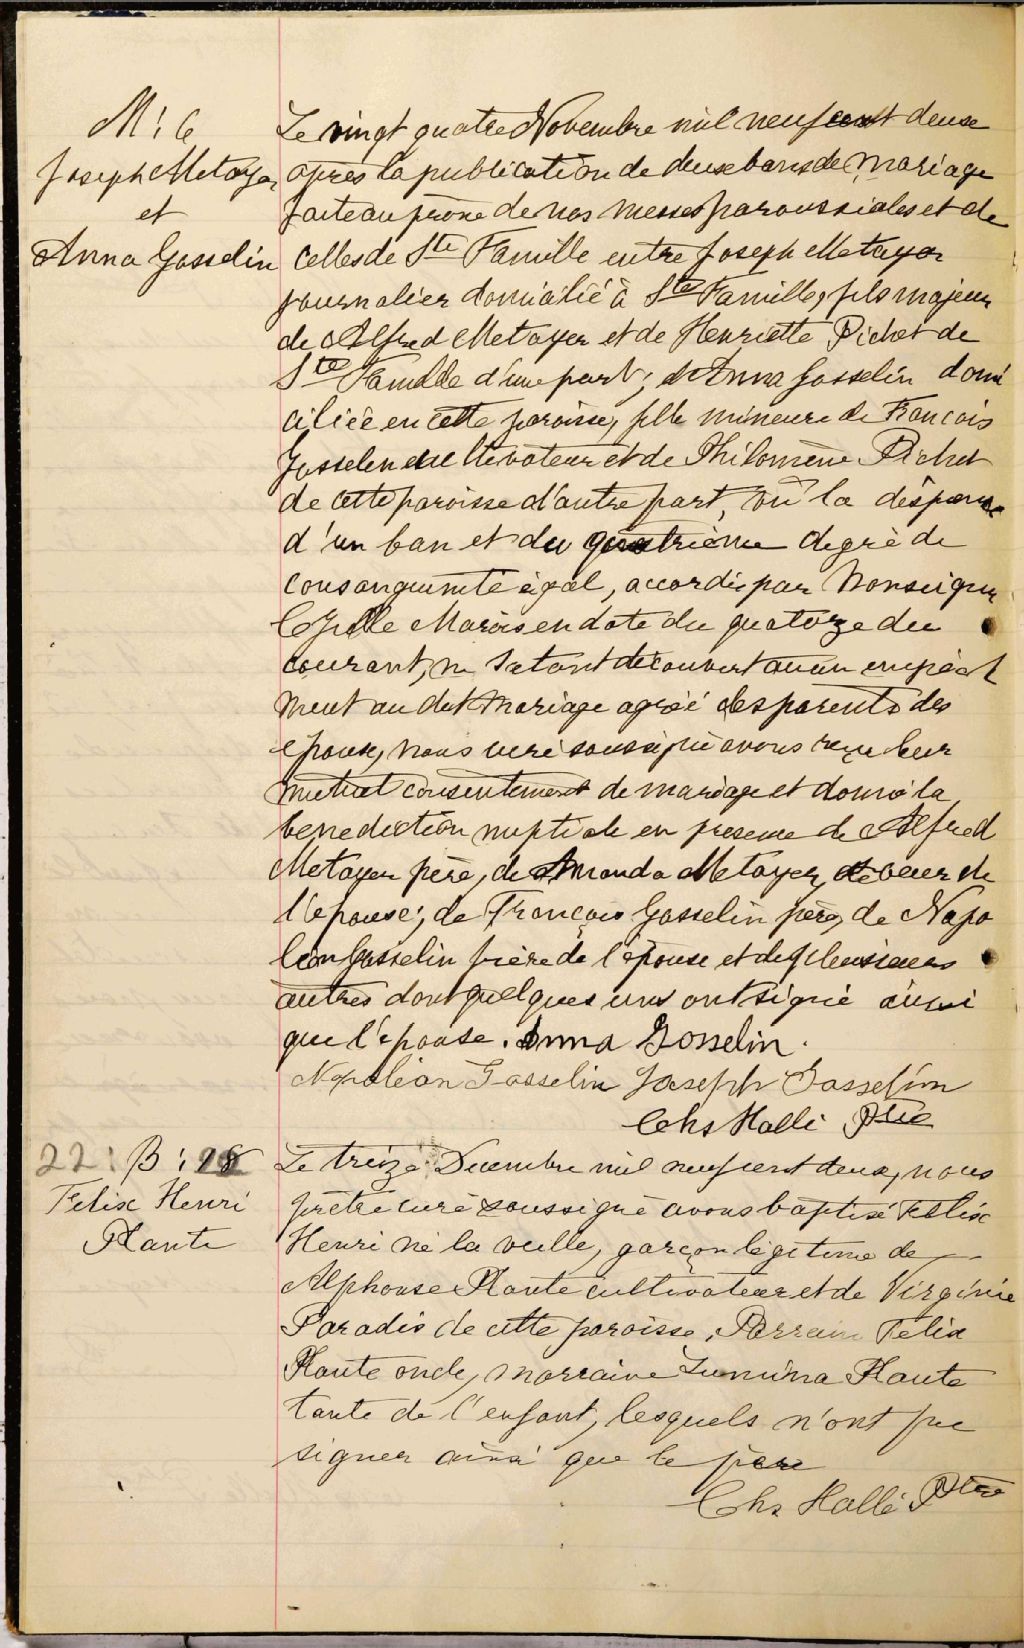 M: 6
Joseph Metayer
et
Anna Gosselin
Le vingt quatre Novembre mil neuf cent deux
après la publication de deux bans de mariage
faite au prône de nos messes paroissiales et de
celles de Ste Famille entre Joseph Metayer
journalier domicilié à Ste Famille, fils majeur
de Alfred Metayer et de Henriette Pichet de
Ste Famille d'une part; et Anna Gosselin domi
ciliée en cette paroisse, fille mineure de Francois
Gosselin cultivateur et de Philomène Pichet
de cette paroisse d'autre part, vu la dispense
d'un ban et du quatrième degré de
consanguinité égal, accordée par Monseigneur
Cyrille Marois en date du quatorze du
courant, ne s'étant découvert aucun empêch
ment au dit mariage agréé des parents des
époux, nous curé soussigné avons reçu leur
mutuel consentement de mariage et donné la
bénédiction nuptiale en présence de Alfred
Metayer père, de Amanda Metayer, de
l'épouse; de François Gosselin père, de Napo
léon Gosselin frère de l'épouse et de plusieurs
autres dont quelques uns ont signé ainsi
que l'épouse. Anna Gosselin.
Napoléon Gosselin Joseph Gosselin
Chs Hallé Ptre
22: B: 18
Felix Henri
Plante
Le treize Décembre mil neuf cent deux, nous
prêtre curé soussigné avons baptisé Félix
Henri né la veille, garçon légitime de
Alphonse Plante cultivateur et de Virginie
Paradis de cette paroisse, Parrain Felix
Plante oncle, marraine Zumina Plante
tante de l'enfant, lesquels n'ont pu
signer ainsi que le père
Chs Hallé Ptre